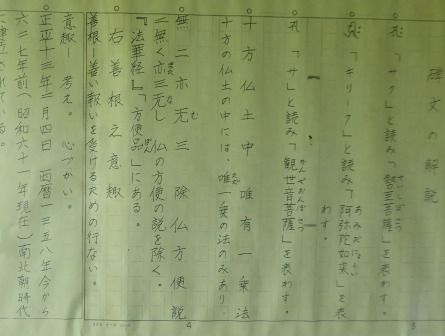 碑文の解説
「サク」と読み「勢至菩薩」を表わす。
「キリーク」と読み「阿弥陀如来」を表
わす。
「サ」と読み「観世音菩薩」を表わす。
十方仏土中唯有一乗法
十方の仏土の中には、唯一乗の法のみあり
無二亦无三除仏方便説
二無く亦三無し仏の方便の説を除く。
『法華経』「方便品」にある。
右善根之意趣
善根ー善い報いを受けるための行ない。
意趣ー考え。心づかい。
正平十三年 月四日西暦一三五八年今から
六二七年前(昭和六十一年現在)南北朝時代